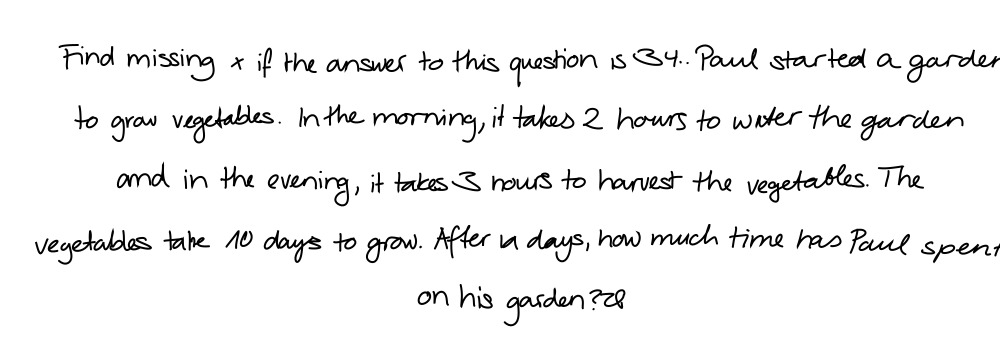 Find missing x if the answer to this question is 34.. Paul started a garden
to grow vegetables. In the morning, it takes 2 hours to water the garden
and in the evening, it takes 3 hours to harvest the vegetables. The
vegetables take 10 days to grow. After n days, how much time has Paul spent
on his garden?